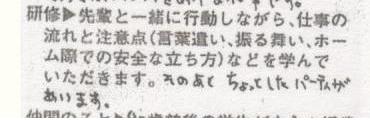 研修▶先輩と一緒に行動しながら、仕事の
流れと注意点(言葉遣い、振る舞い、ホー
ム際での安全な立ち方)などを学んで
いただきます。そのあと ちょっとした パーティが
あります。